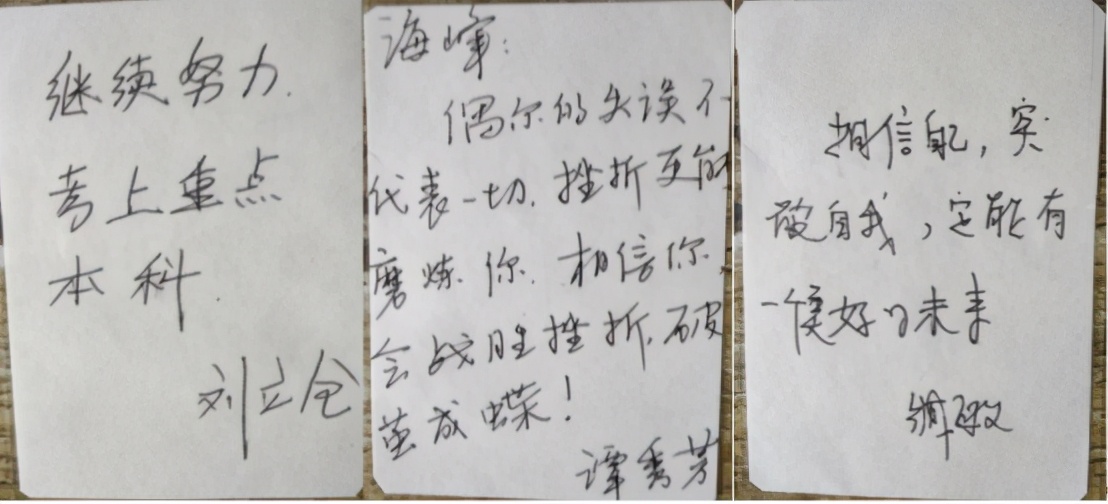 继续努力.
考上重点
本科.
刘立仓
海峰:
偶尔的失误不
代表一切.挫折更能
磨炼你.相信你,
会战胜挫折.破
茧成蝶!
谭秀芳
相信自己,突
破自我,定能有
一个美好的未来